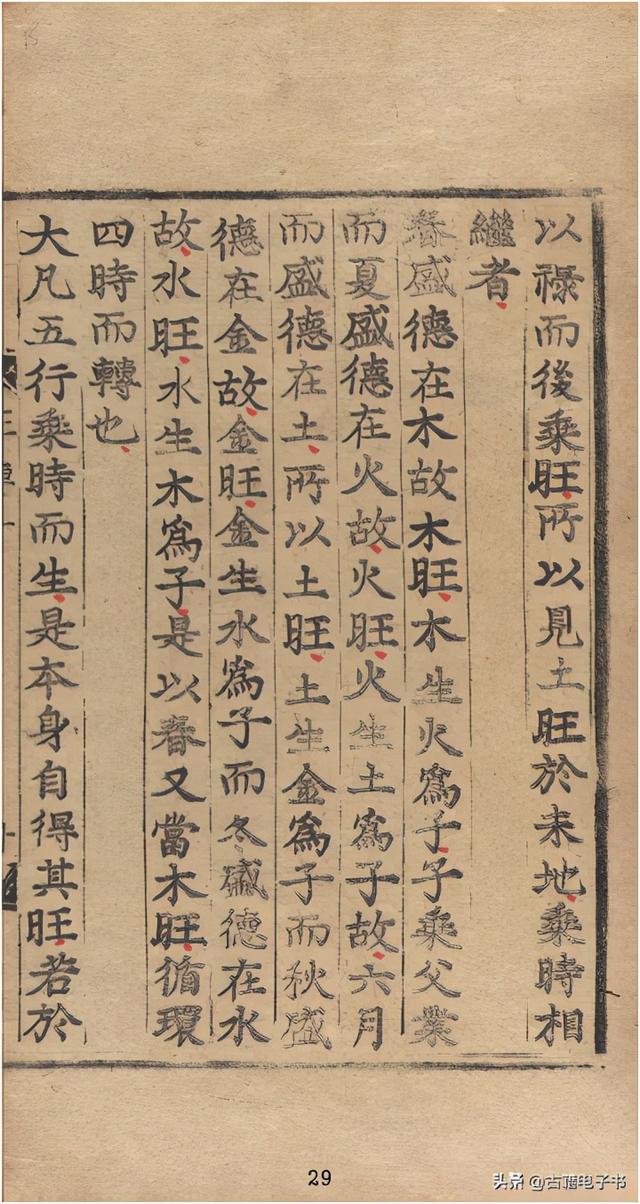 以祿而後乘旺所以見土旺於未地乘時相
繼者
春盛德在木故木旺木生火爲子子乘父業
而夏盛德在火故火旺火生土爲子故六月
而盛德在土所以土旺土生金爲子而秋盛
德在金故金旺金生水爲子而冬盛德在水
故水旺水生木爲子是以春又當木旺循環
四時而轉也
大凡五行乘時而生是本身自得其旺若於
29
头条 @古籍电子书